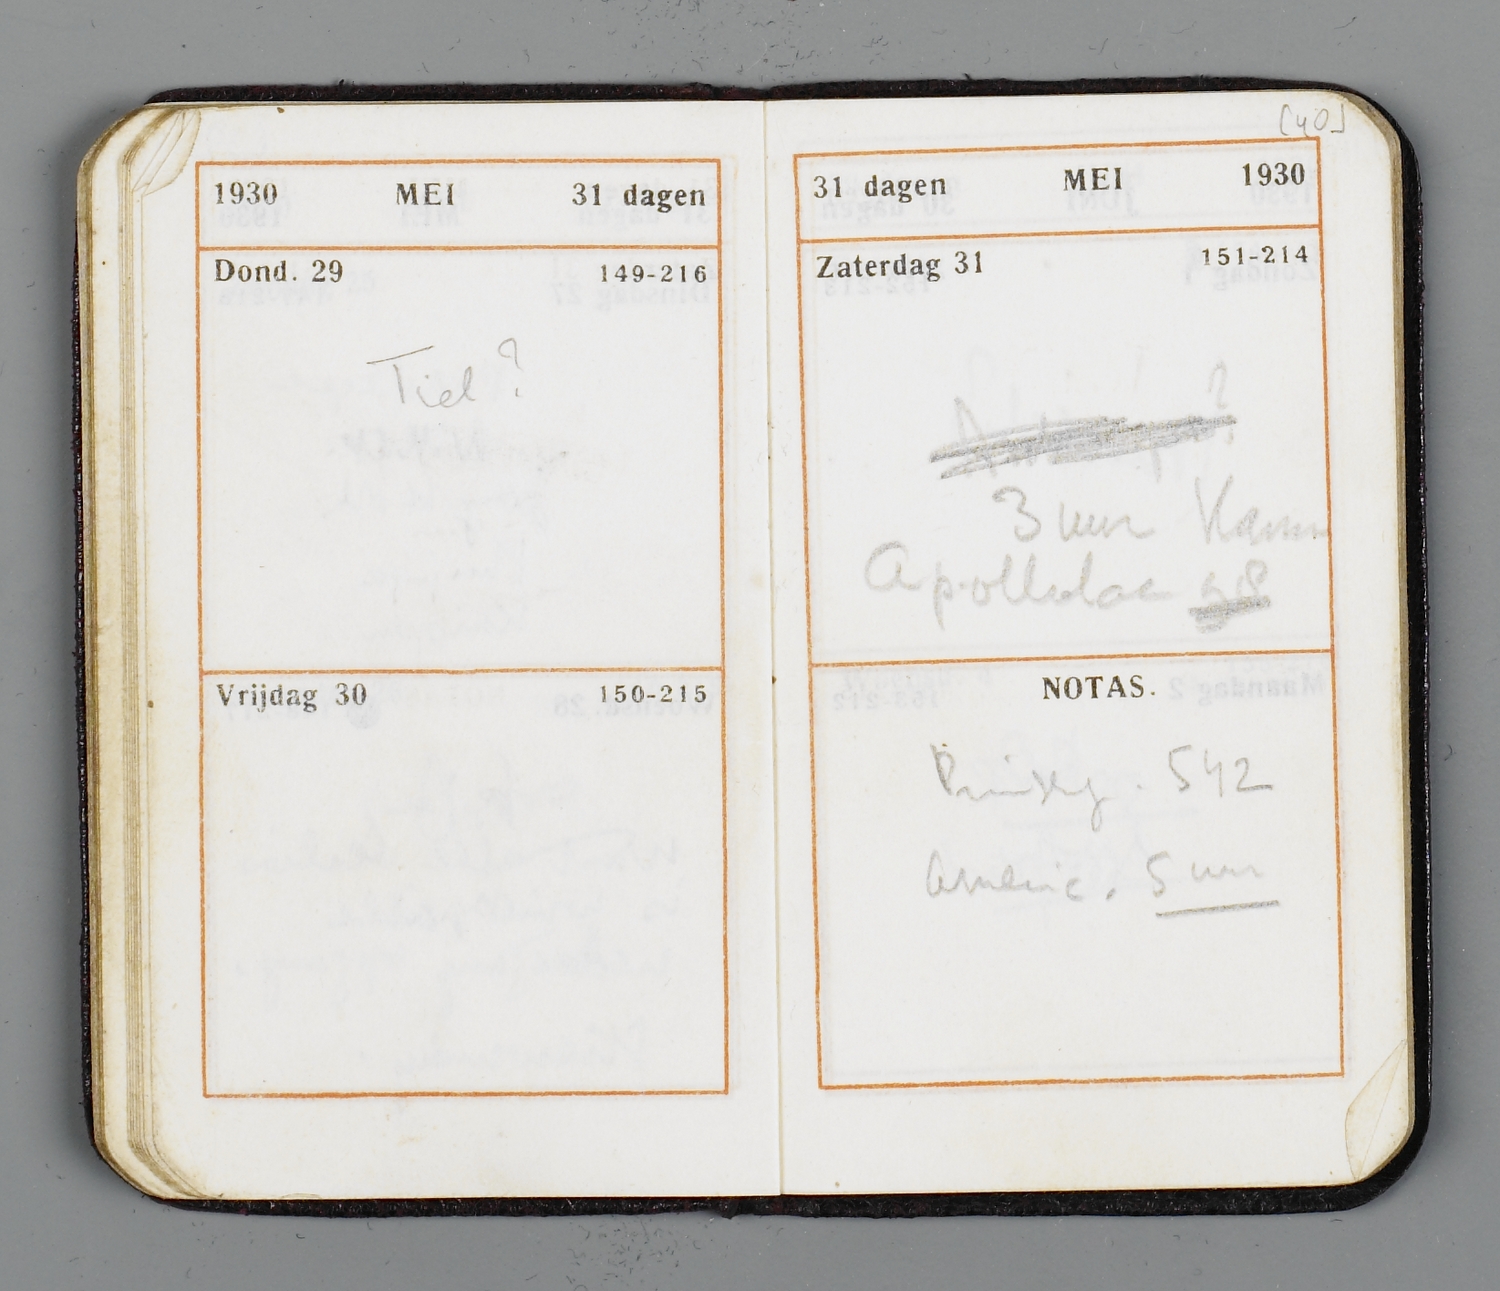 1930 MEI 31 dagen
Dond. 29 149-216
Tiel ?
Vrijdag 30 150-215
[40]
31 dagen MEI 1930
Zaterdag 31 151-214
?
3 uur
Apollolaan 98
NOTAS.
542
5 uur